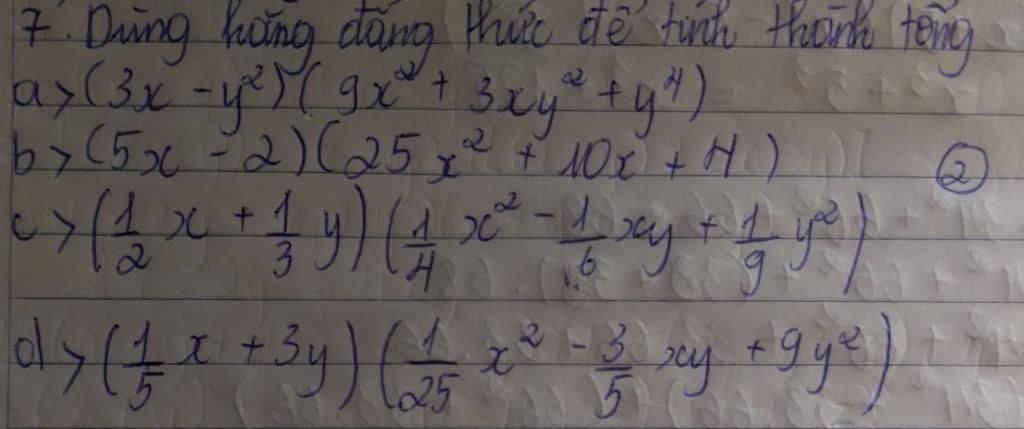 7. Dùng hằng đẳng thức để tính thành tổng
a> (3x - y²)(9x² + 3xy² + y⁴)
b> (5x - 2)(25x² + 10x + 4) ②
c> (1/2 x + 1/3 y)(1/4 x² - 1/6 xy + 1/9 y²)
d> (1/5 x + 3y)(1/25 x² - 3/5 xy + 9y²)